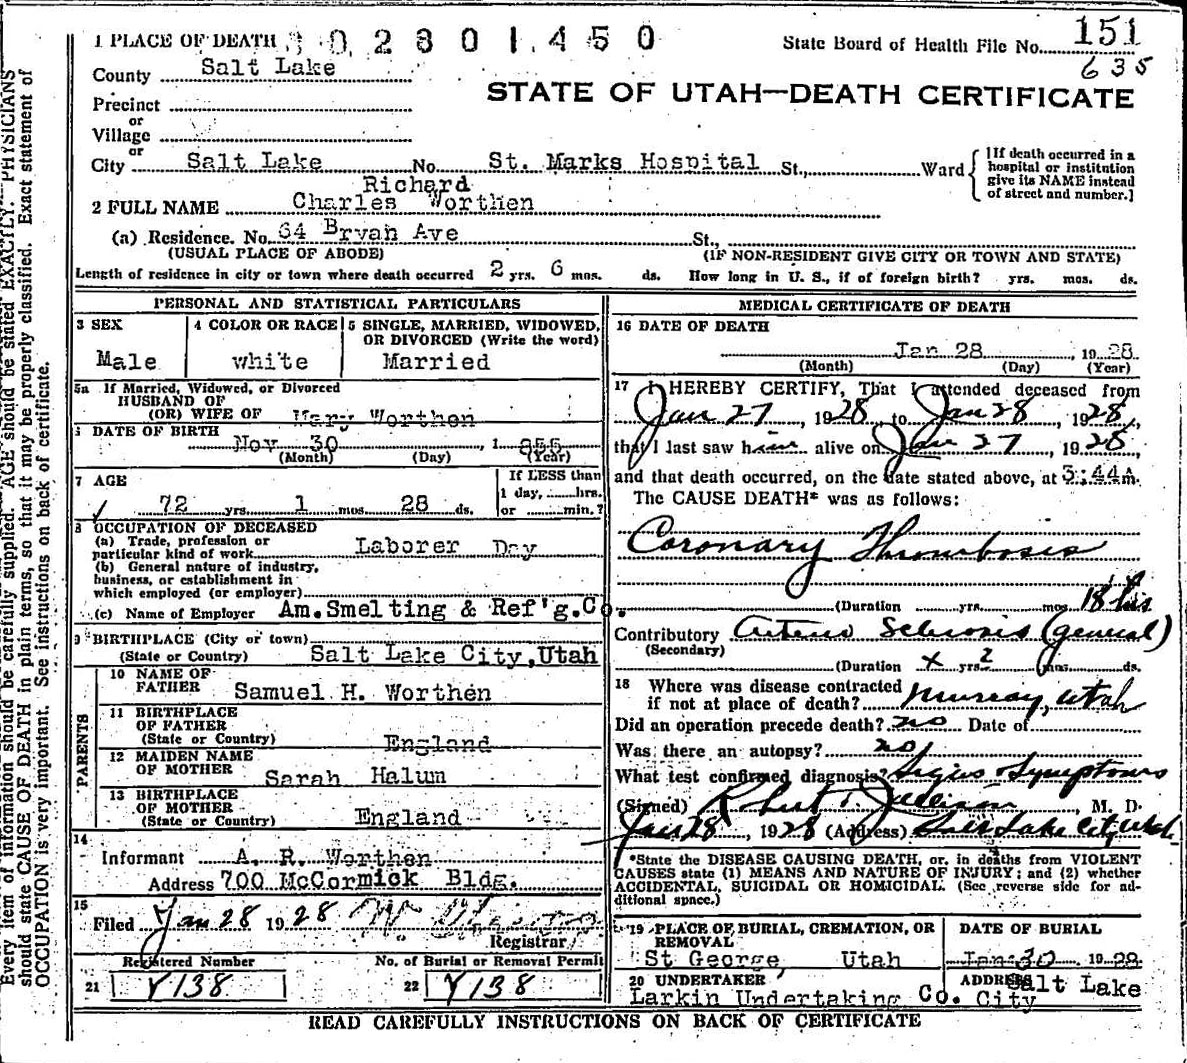 1 PLACE OF DEATH 3 0 2 8 0 1 4 5 0
State Board of Health File No. 151
635
County Salt Lake
STATE OF UTAH—DEATH CERTIFICATE
Precinct
or
Village
or
City Salt Lake No. St. Marks Hospital St., Ward
[If death occurred in a hospital or institution give its NAME instead of street and number.]
Richard
2 FULL NAME Charles Worthen
(a) Residence. No. 64 Bryan Ave St.,
(USUAL PLACE OF ABODE) (IF NON-RESIDENT GIVE CITY OR TOWN AND STATE)
Length of residence in city or town where death occurred 2 yrs. 6 mos. ds. How long in U. S., if of foreign birth? yrs. mos. ds.
PERSONAL AND STATISTICAL PARTICULARS
3 SEX
Male
4 COLOR OR RACE
white
5 SINGLE, MARRIED, WIDOWED,
OR DIVORCED (Write the word)
Married
5a If Married, Widowed, or Divorced
HUSBAND OF
(OR) WIFE OF Mary Worthen
DATE OF BIRTH
Nov 30 1 855
(Month) (Day) (Year)
7 AGE
72 yrs. 1 mos. 28 ds.
If LESS than
1 day, hrs.
or min.?
8 OCCUPATION OF DECEASED
(a) Trade, profession or
particular kind of work Laborer Day
(b) General nature of industry,
business, or establishment in
which employed (or employer)
(c) Name of Employer Am. Smelting & Ref'g. Co.
9 BIRTHPLACE (City or town)
(State or Country) Salt Lake City, Utah
PARENTS
10 NAME OF
FATHER Samuel H. Worthen
11 BIRTHPLACE
OF FATHER
(State or Country) England
12 MAIDEN NAME
OF MOTHER Sarah Halum
13 BIRTHPLACE
OF MOTHER
(State or Country) England
14
Informant A. R. Worthen
Address 700 McCormick Bldg.
15
Filed Jan 28 1928
Registrar
Registered Number
21 Y138
No. of Burial or Removal Permit
22 Y138
MEDICAL CERTIFICATE OF DEATH
16 DATE OF DEATH
Jan 28, 1928
(Month) (Day) (Year)
17 I HEREBY CERTIFY, That I attended deceased from
Jan 27, 1928, to Jan 28, 1928,
that I last saw him alive on Jan 27, 1928,
and that death occurred, on the date stated above, at 3:44A m.
The CAUSE DEATH* was as follows:
Coronary Thrombosis
(Duration yrs. mos. 18 hrs
Contributory Arterio Sclerosis (general)
(Secondary)
(Duration x yrs. 2 mos. ds.
18 Where was disease contracted
if not at place of death? Murray, Utah
Did an operation precede death? no Date of
Was there an autopsy? no
What test confirmed diagnosis? Signs & Symptoms
(Signed) Robert T. M. D.
Jan 28, 1928 (Address) Salt Lake City, Utah
*State the DISEASE CAUSING DEATH, or, in deaths from VIOLENT
CAUSES state (1) MEANS AND NATURE OF INJURY; and (2) whether
ACCIDENTAL, SUICIDAL OR HOMICIDAL. (See reverse side for additional space.)
19 PLACE OF BURIAL, CREMATION, OR
REMOVAL
St George, Utah
DATE OF BURIAL
Jan 30, 1928
20 UNDERTAKER
Larkin Undertaking Co.
ADDRESS Salt Lake
City
READ CAREFULLY INSTRUCTIONS ON BACK OF CERTIFICATE
Every item of information should be carefully supplied. AGE should be stated EXACTLY. PHYSICIANS
should state CAUSE OF DEATH in plain terms, so that it may be properly classified. Exact statement of
OCCUPATION is very important. See instructions on back of certificate.